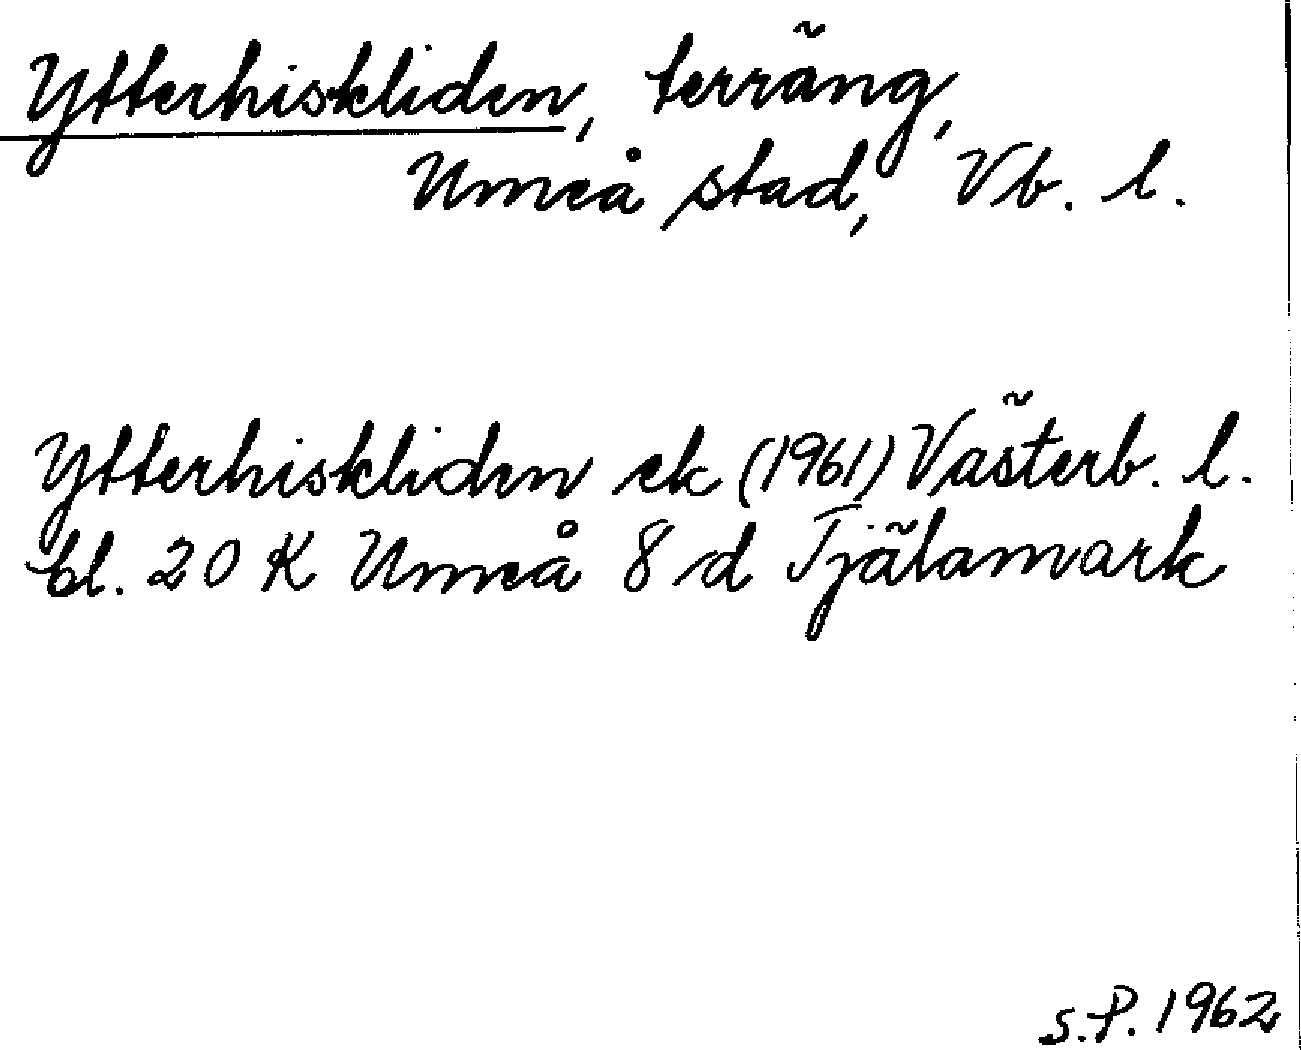 Ytterhiskliden, terräng,
Umeå stad, Vb. l.
Ytterhiskliden ek (1961) Västerb. l.
bl. 20 K Umeå 8 d Tjälamark
S.P. 1962